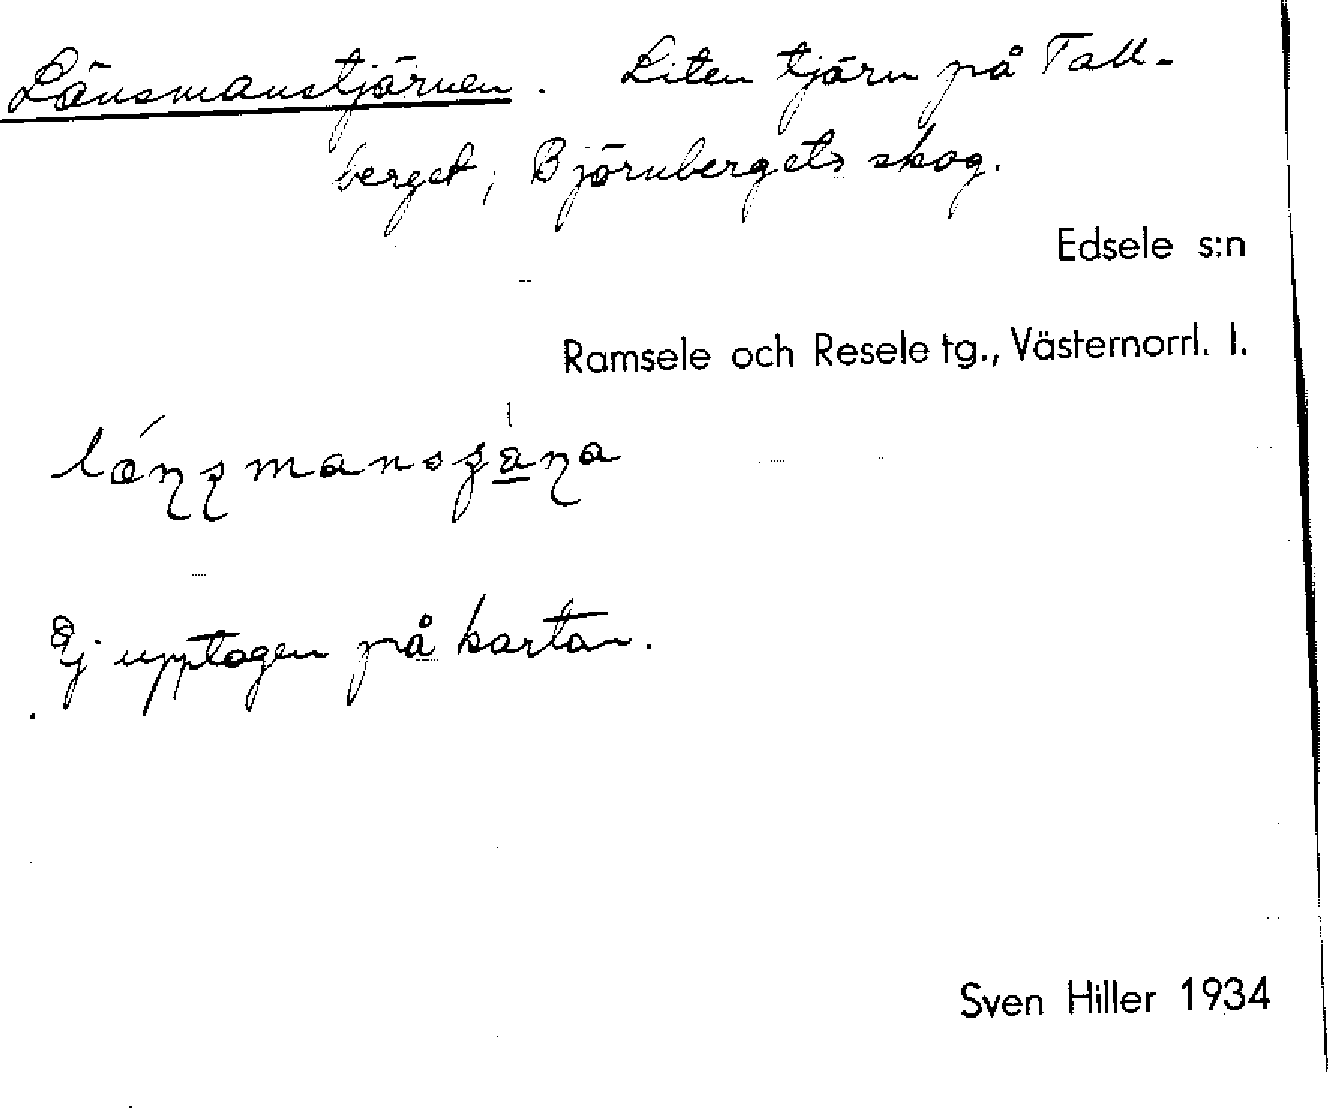 Länsmanstjärnen. Liten tjärn på Tall-
berget, Björnbergets skog.
Edsele s:n
Ramsele och Resele tg., Västernorrl. l.
Ej upptagen på kartan.
Sven Hiller 1934